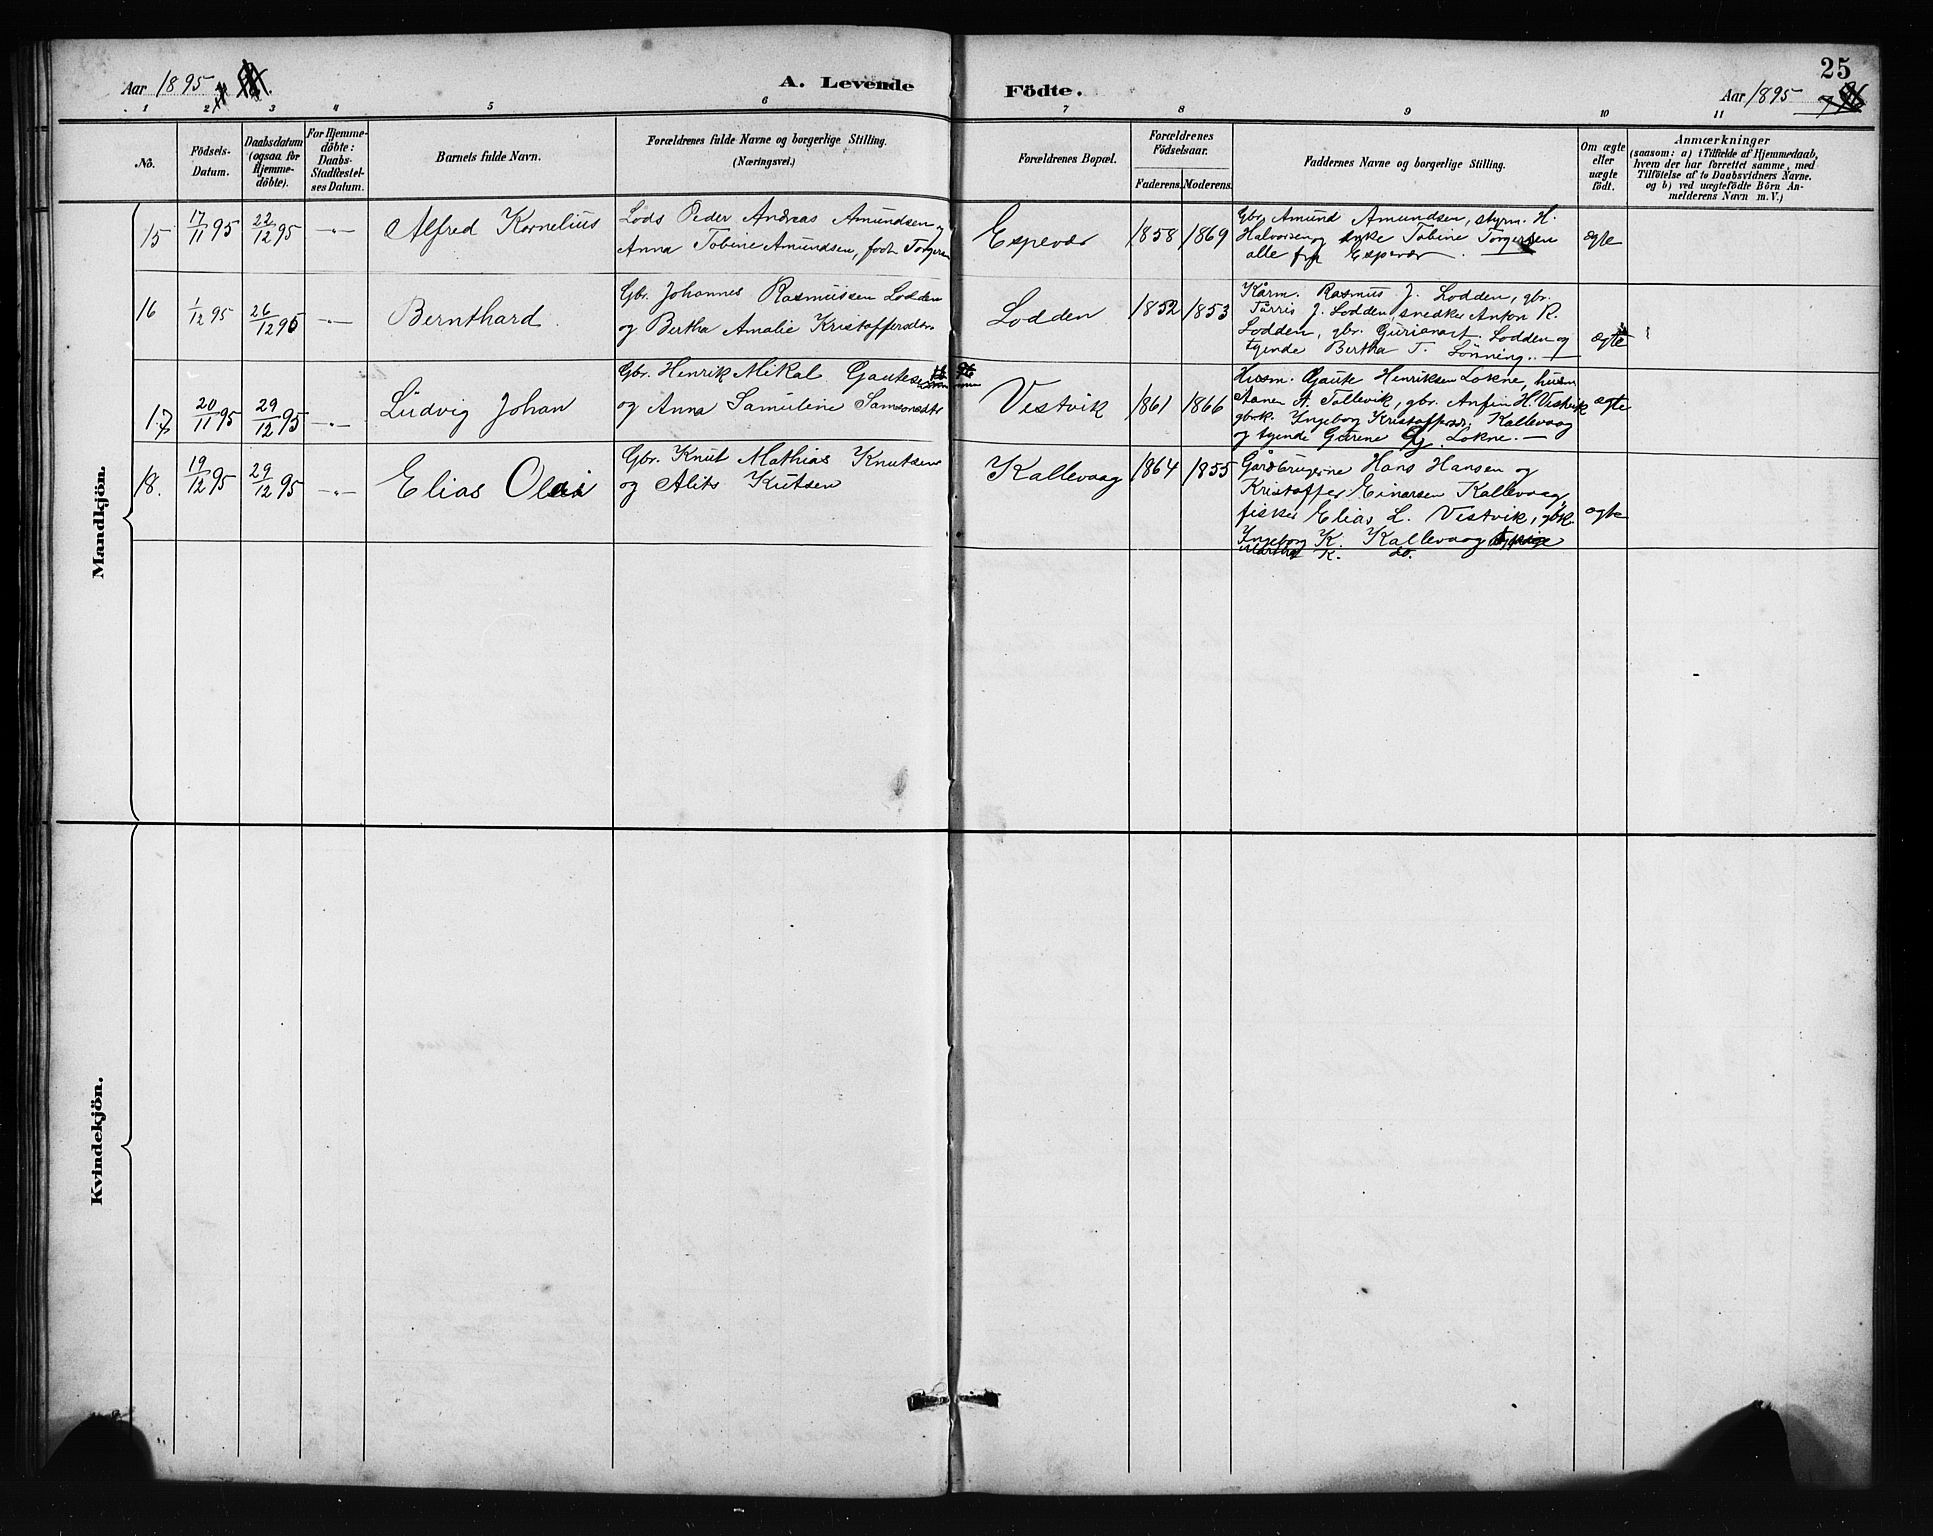 25
Aar 1895
A. Levende Födte.
Aar 1895
1 2 3 4 5 6 7 8 9 10 11
No.
Födsels-
Datum.
Daabsdatum
(ogsaa for
Hjemme-
döbte).
For Hjemme-
döbte:
Daabs-
Stadfæstel-
ses Datum.
Barnets fulde Navn.
Forældrenes fulde Navne og borgerlige Stilling.
(Næringsvei.)
Forældrenes Bopæl.
Forældrenes
Födselsaar.
Faderens. Moderens.
Faddernes Navne og borgerlige Stilling.
Om ægte
eller
uægte
födt.
Anmærkninger
(saasom: a) i Tilfælde af Hjemmedaab,
hvem der har forrettet samme, med
Tilföielse af to Daabsvidners Navne.
og b) ved uægtefödte Börn An-
melderens Navn m. V.)
Mandkjön.
15 17/11 95 22/12 95 -"- Alfred Kornelius
Lods Peder Andreas Amundsen og
Anna Tobine Amundsen, født Torgersen
Espevær 1858 1869
Gbr. Amund Amundsen, styrm. H.
Halvorsen og Tobine Torgersen
alle fra Espevær.
ægte
16 1/12 95 26/12 95 -"- Bernthard
Gbr. Johannes Rasmussen Lodden
og Bertha Amalie Kristoffersdr.
Lodden 1852 1853
Kårm. Rasmus J. Lodden, gbr.
Tårris J. Lodden, snedker Anton R.
Lodden, gbr. Lodden og
tjende Bertha T. Lønning.
ægte
17 20/11 95 29/12 95 -"- Ludvig Johan
Gbr. Henrik Mikal Gautesen
og Anna Samuline Samsonsdtr
Vestvik 1861 1866
Husm. Gaute Henriksen Lokne, husm
Aanen A. Tollevik, gbr. Anfin H. Vestvik
gbrk. Ingeborg Kristoffersdr. Kallevaag
og tjende Gurene G. Lokne.
ægte
18. 19/12 95 29/12 95 -"- Elias Olai
Gbr. Knut Mathias Knutsen
og Alits Knutsen
Kallevaag 1864 1855
Gårdbrugerne Hans Hansen og
Kristoffer Einarsen Kallevaag,
fisker Elias L. Vestvik, gbrk.
Ingeborg K. Kallevaag
Martha K. do.
ægte
Kvindekjön.